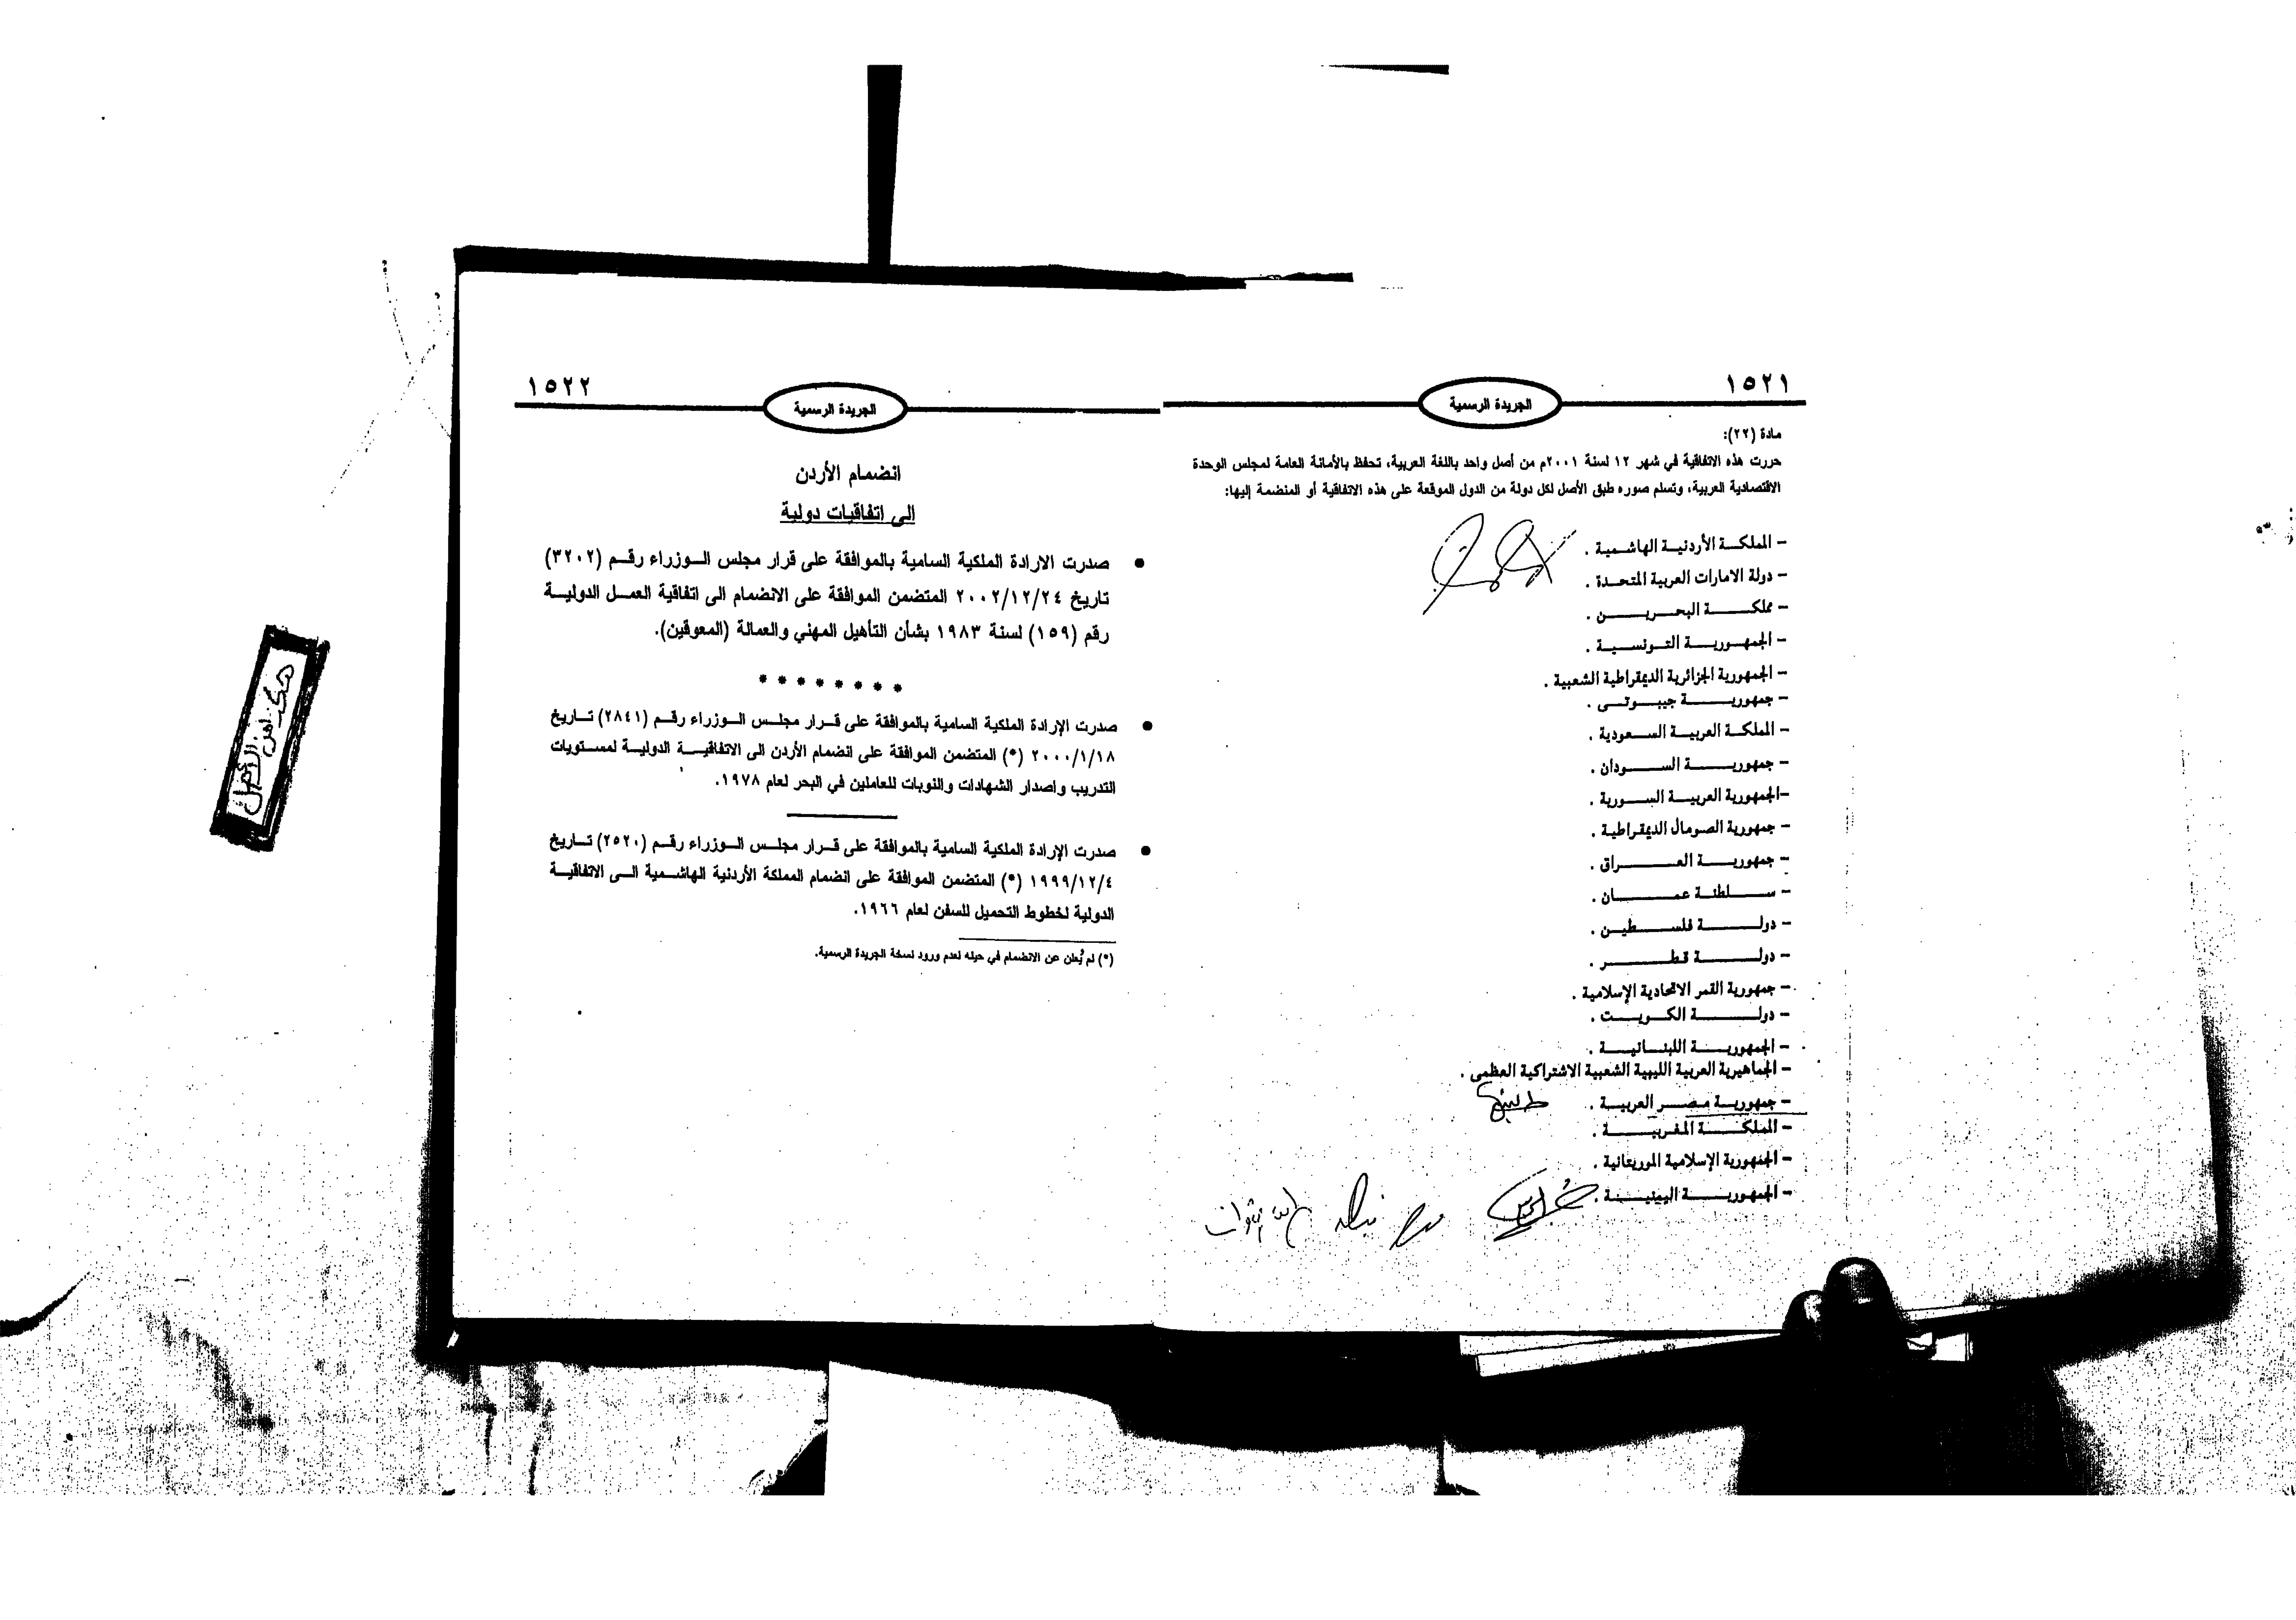 ١٥٢١
الجريدة الرسمية
مادة (٢٢):
حررت هذه الاتفاقية في شهر ١٢ لسنة ٢٠٠١م من أصل واحد باللغة العربية، تحفظ بالأمانة العامة لمجلس الوحدة
الاقتصادية العربية، وتسلم صوره طبق الأصل لكل دولة من الدول الموقعة على هذه الاتفاقية أو المنضمة إليها:
- المملكة الأردنية الهاشمية .
- دولة الامارات العربية المتحدة .
- مملكة البحرين .
- الجمهورية التونسية .
- الجمهورية الجزائرية الديمقراطية الشعبية .
- جمهورية جيبوتى .
- المملكة العربية السعودية .
- جمهورية السودان .
-الجمهورية العربية السورية .
- جمهورية الصومال الديمقراطية .
- جمهورية العراق .
- سلطنة عمان .
- دولة فلسطين .
- دولة قطر .
- جمهورية القمر الاتحادية الإسلامية .
- دولة الكويت .
- الجمهورية اللبنانية .
- الجماهيرية العربية الليبية الشعبية الاشتراكية العظمى .
- جمهورية مصر العربية .
- المملكة المغربية .
- الجمهورية الإسلامية الموريتانية .
- الجمهورية اليمنية .
١٥٢٢
الجريدة الرسمية
انضمام الأردن
الى اتفاقيات دولية
• صدرت الارادة الملكية السامية بالموافقة على قرار مجلس الوزراء رقم (٣٢٠٢)
تاريخ ٢٠٠٢/١٢/٢٤ المتضمن الموافقة على الانضمام الى اتفاقية العمل الدولية
رقم (١٥٩) لسنة ١٩٨٣ بشأن التأهيل المهني والعمالة (المعوقين).
* * * * * * * *
• صدرت الإرادة الملكية السامية بالموافقة على قرار مجلس الوزراء رقم (٢٨٤١) تاريخ
٢٠٠٠/١/١٨ (*) المتضمن الموافقة على انضمام الأردن الى الاتفاقية الدولية لمستويات
التدريب واصدار الشهادات والنوبات للعاملين في البحر لعام ١٩٧٨.
• صدرت الإرادة الملكية السامية بالموافقة على قرار مجلس الوزراء رقم (٢٥٢٠) تاريخ
١٩٩٩/١٢/٤ (*) المتضمن الموافقة على انضمام المملكة الأردنية الهاشمية الى الاتفاقية
الدولية لخطوط التحميل للسفن لعام ١٩٦٦.
(*) لم يُعلن عن الانضمام في حينه لعدم ورود نسخة الجريدة الرسمية.